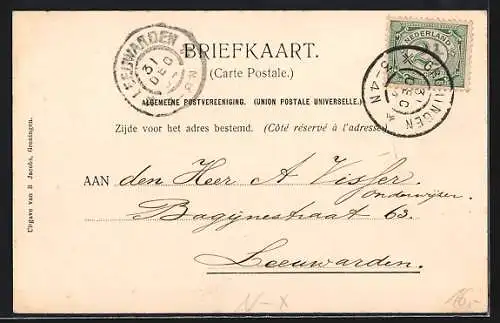 LEEUWARDEN
31 DEC
NEDERLAND
GRONINGEN
31 DEC
8-4N
BRIEFKAART.
(Carte Postale.)
ALGEMEENE POSTVEREENIGING. (UNION POSTALE UNIVERSELLE.)
Zijde voor het adres bestemd. (Côté réservé à l'adresse)
AAN den Heer A Visser,
Onderwijzer.
Bagijnestraat 63.
Leeuwarden.
Uitgave van B Jacobs, Groningen.
N-X